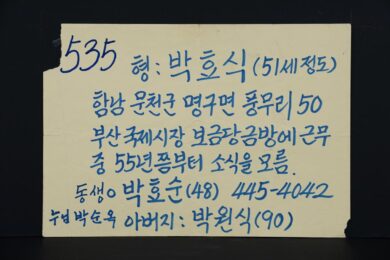 535
형: 박효식 (51세정도)
함남 문천군 명구면 풍무리 50
부산 국제시장 보금당금방에 근무
중 55년쯤부터 소식을 모름.
동생o 박효순 (48) 445-4042
누님 박순옥 아버지: 박원식 (90)